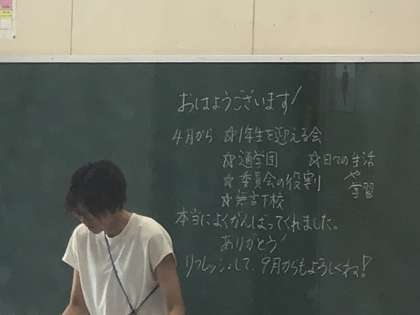 おはようございます!
4月から ☆1年生を迎える会
☆通学団 ☆日々の生活
☆委員会の役割 や
☆無言下校 学習
本当によくがんばってくれました。
ありがとう!
リフレッシュして、9月からもよろしくネ!